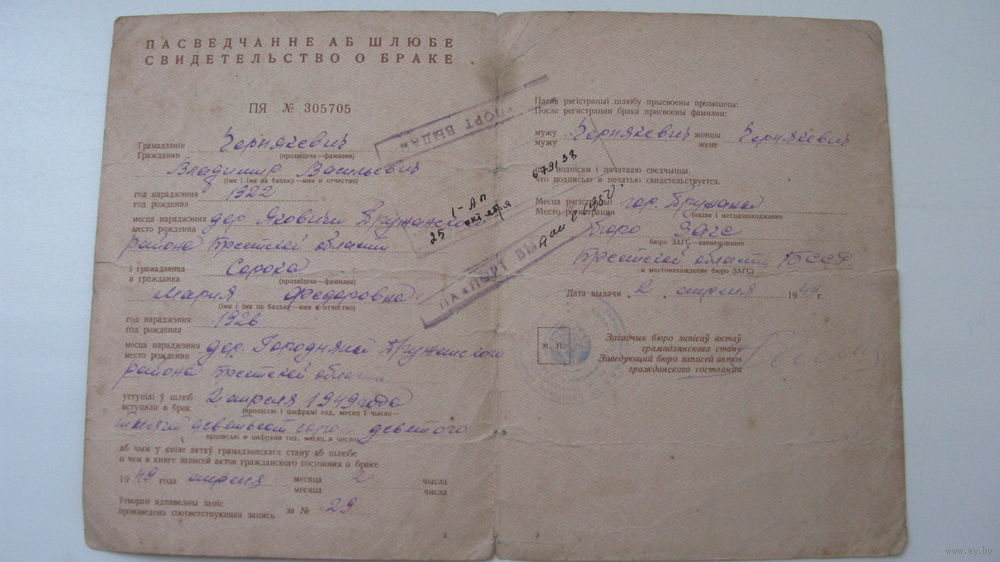 ПАСВЕДЧАННЕ АБ ШЛЮБЕ
СВИДЕТЕЛЬСТВО О БРАКЕ
ПЯ № 305705
Грамадзянін
Гражданин
Чернякевич
(прозвішча—фамилия)
Владимир Васильевич
(імя і імя па бацьку—имя и отчество)
год нараджэння
год рождения
1922
месца нараджэння
место рождения
дер. Яковичи Пружанского
района Брестской области
і грамадзянка
и гражданка
Сорока
(прозвішча—фамилия)
Мария Федоровна
(імя і імя па бацьку—имя и отчество)
год нараджэння
год рождения
1926
месца нараджэння
место рождения
дер. Пружанского
района Брестской области
уступілі ў шлюб
вступили в брак
2 апреля 1949 года
(пропіссю і цыфрамі год, месяц і число—
тысяча девятьсот сорок девятого
прописью и цифрами год, месяц и число)
аб чым у кнізе актаў грамадзянскага стану аб шлюбе
о чем в книге записей актов гражданского состояния о браке
1949 года апреля месяца 2 чысла
месяца числа
ўтворан адпаведны запіс
произведена соответствующая запись
за № 29
2
ПОРТ ВЫДА
1-АП
25 октября
679138
ПАСПОРТ ВЫ
Пасля рэгістрацыі шлюбу прысвоены прозвішчы:
После регистрации брака присвоены фамилии:
мужу
мужу
Чернякевич
жонцы
жене
Чернякевич
подпісам і пячаткаю сведчыцца
что подписью и печатью свидетельствуется.
Месца рэгістрацыі
Место регистрации
гор. Пружаны
(назва і месцазнаходжанне
бюро ЗАГС
бюро ЗАГС—наименование
Брестской области БССР
и местонахождение бюро ЗАГС)
Дата выдачи 2 апреля 1949 г.
М. П.
Загадчик бюро запісаў актаў
грамадзянскага стану
Заведующий бюро записей актов
гражданского состояния
3
www.ay.by